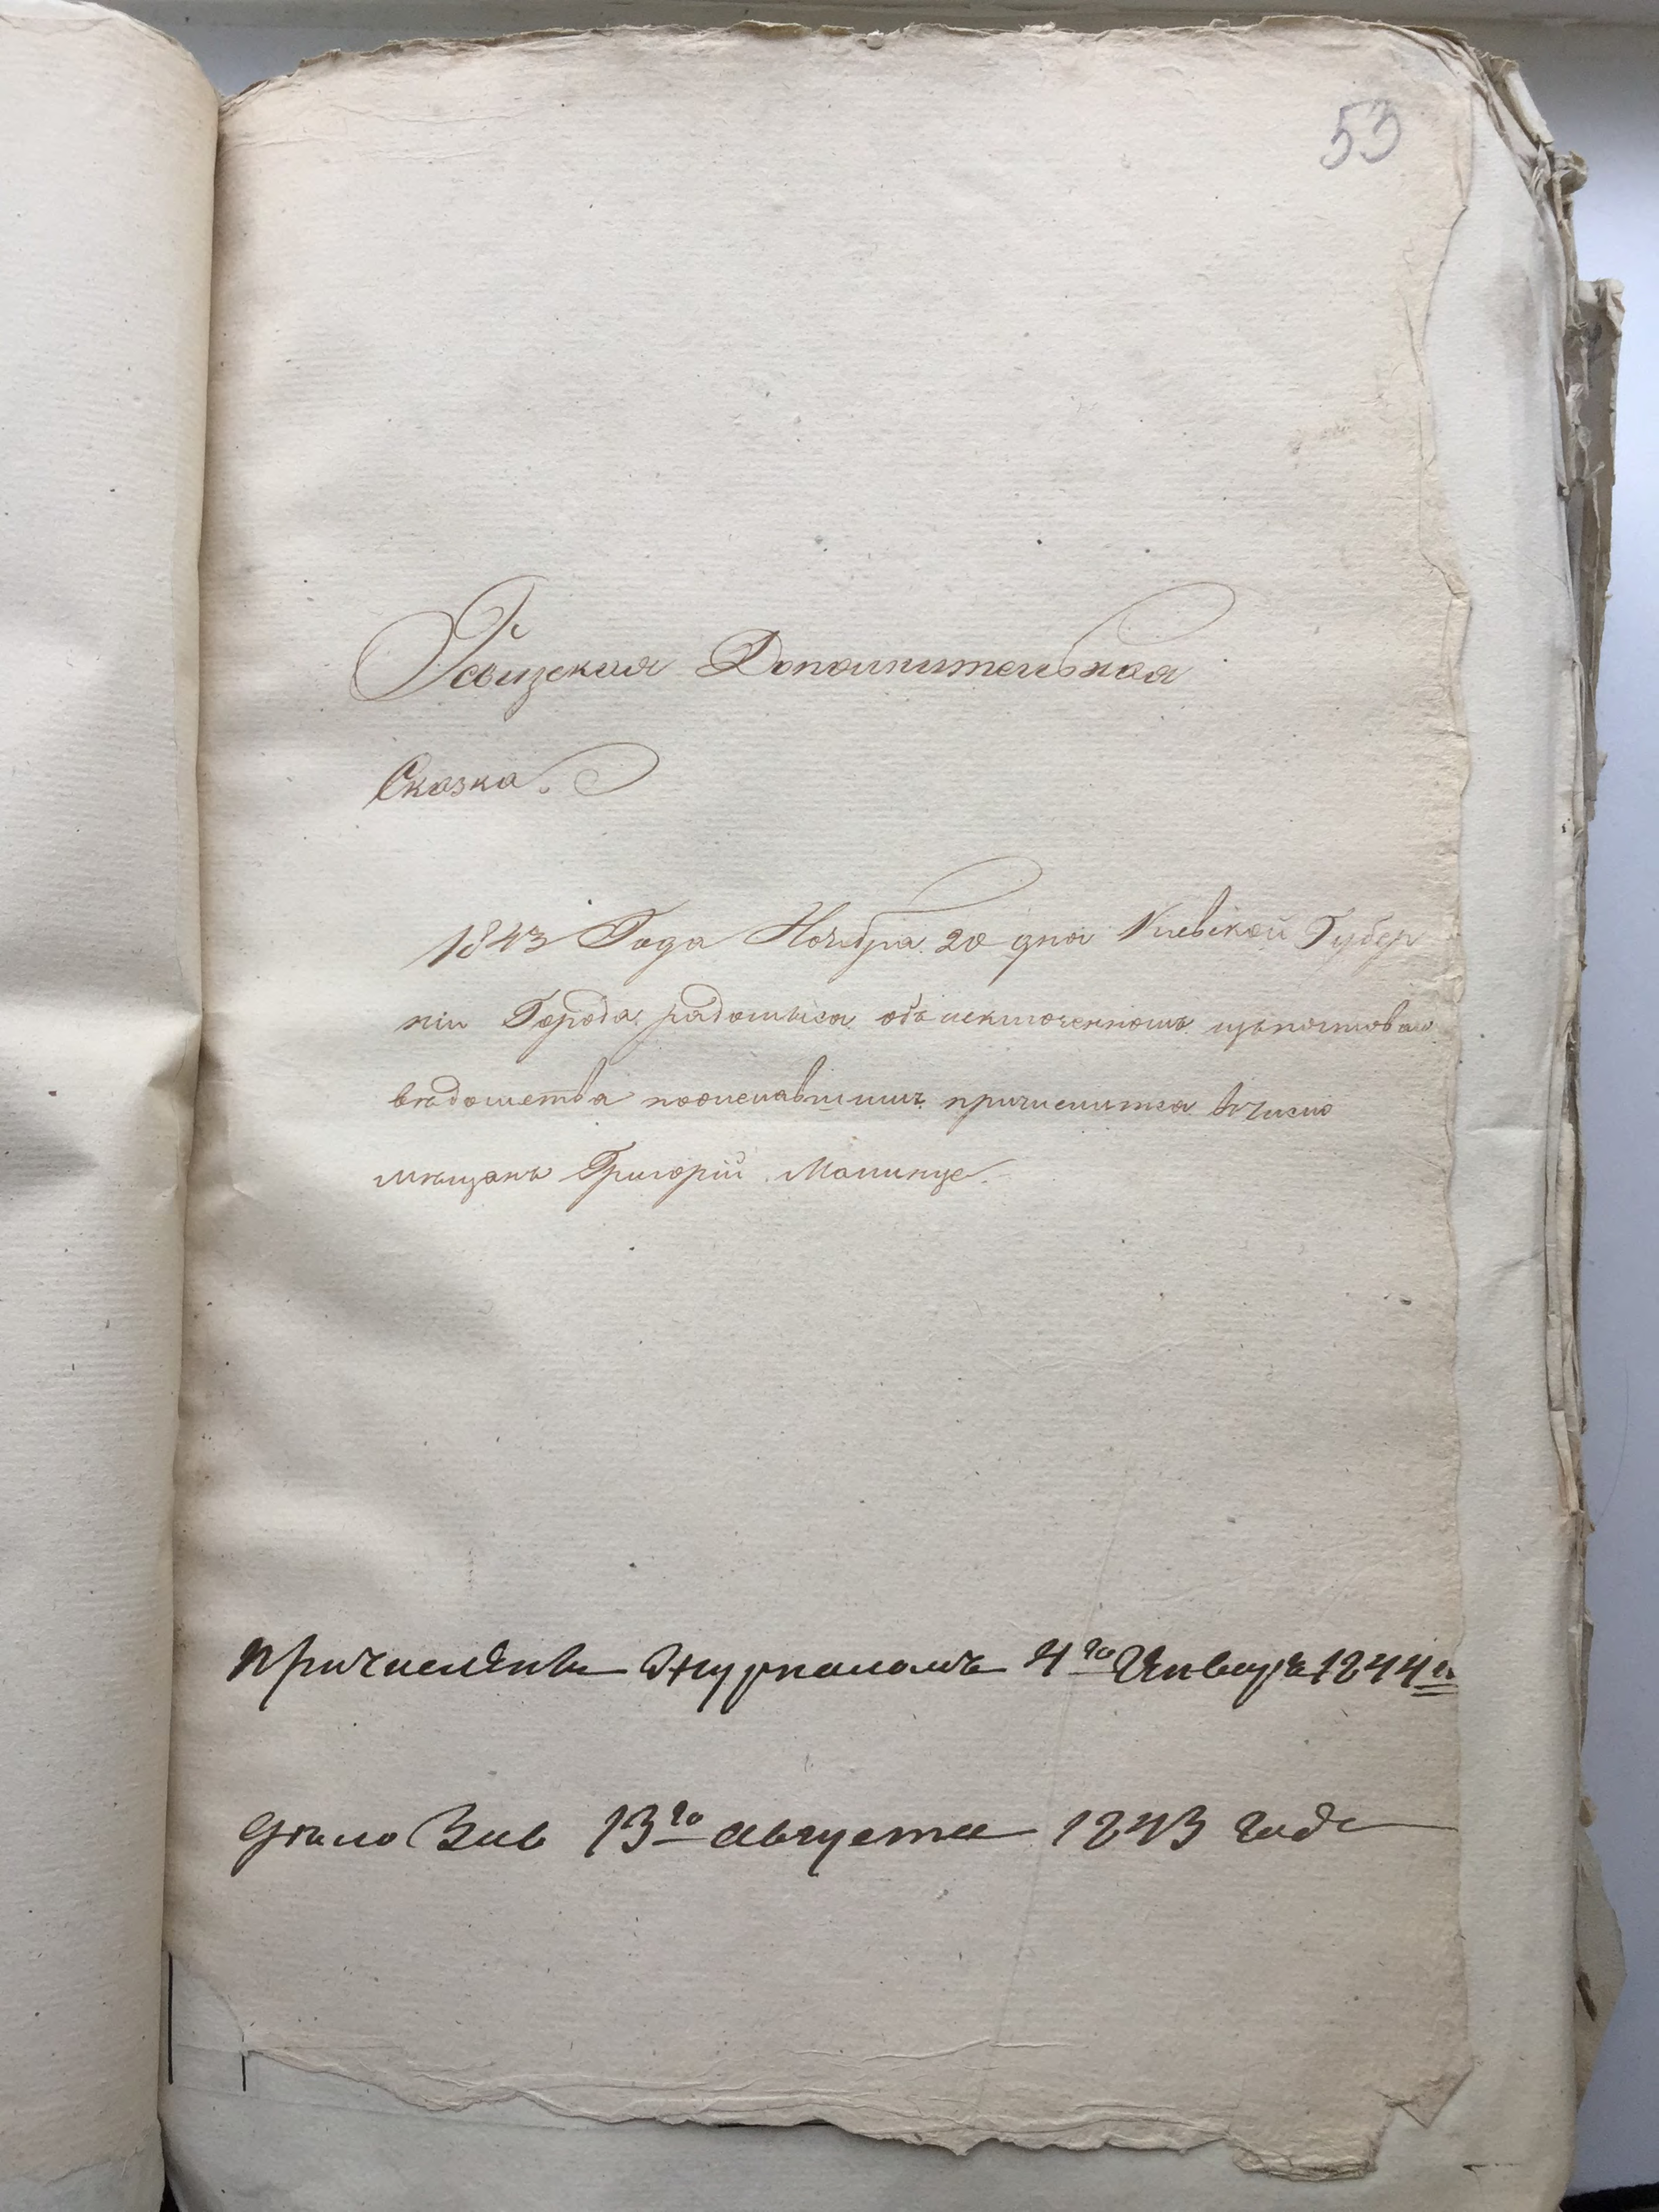 53
Ревизская Дополнительная
Сказка.
1843 Года Ноября 20 дня Киевской Губер
ніи Города радомысла объ исключенномъ изъ почтоваго
вѣдомства пожелавшимъ причислится вчисло
мѣщанъ Григорій
Причисленъ Журналомъ 4го Января 1844 г.
Дѣло 13го августа 1843 года